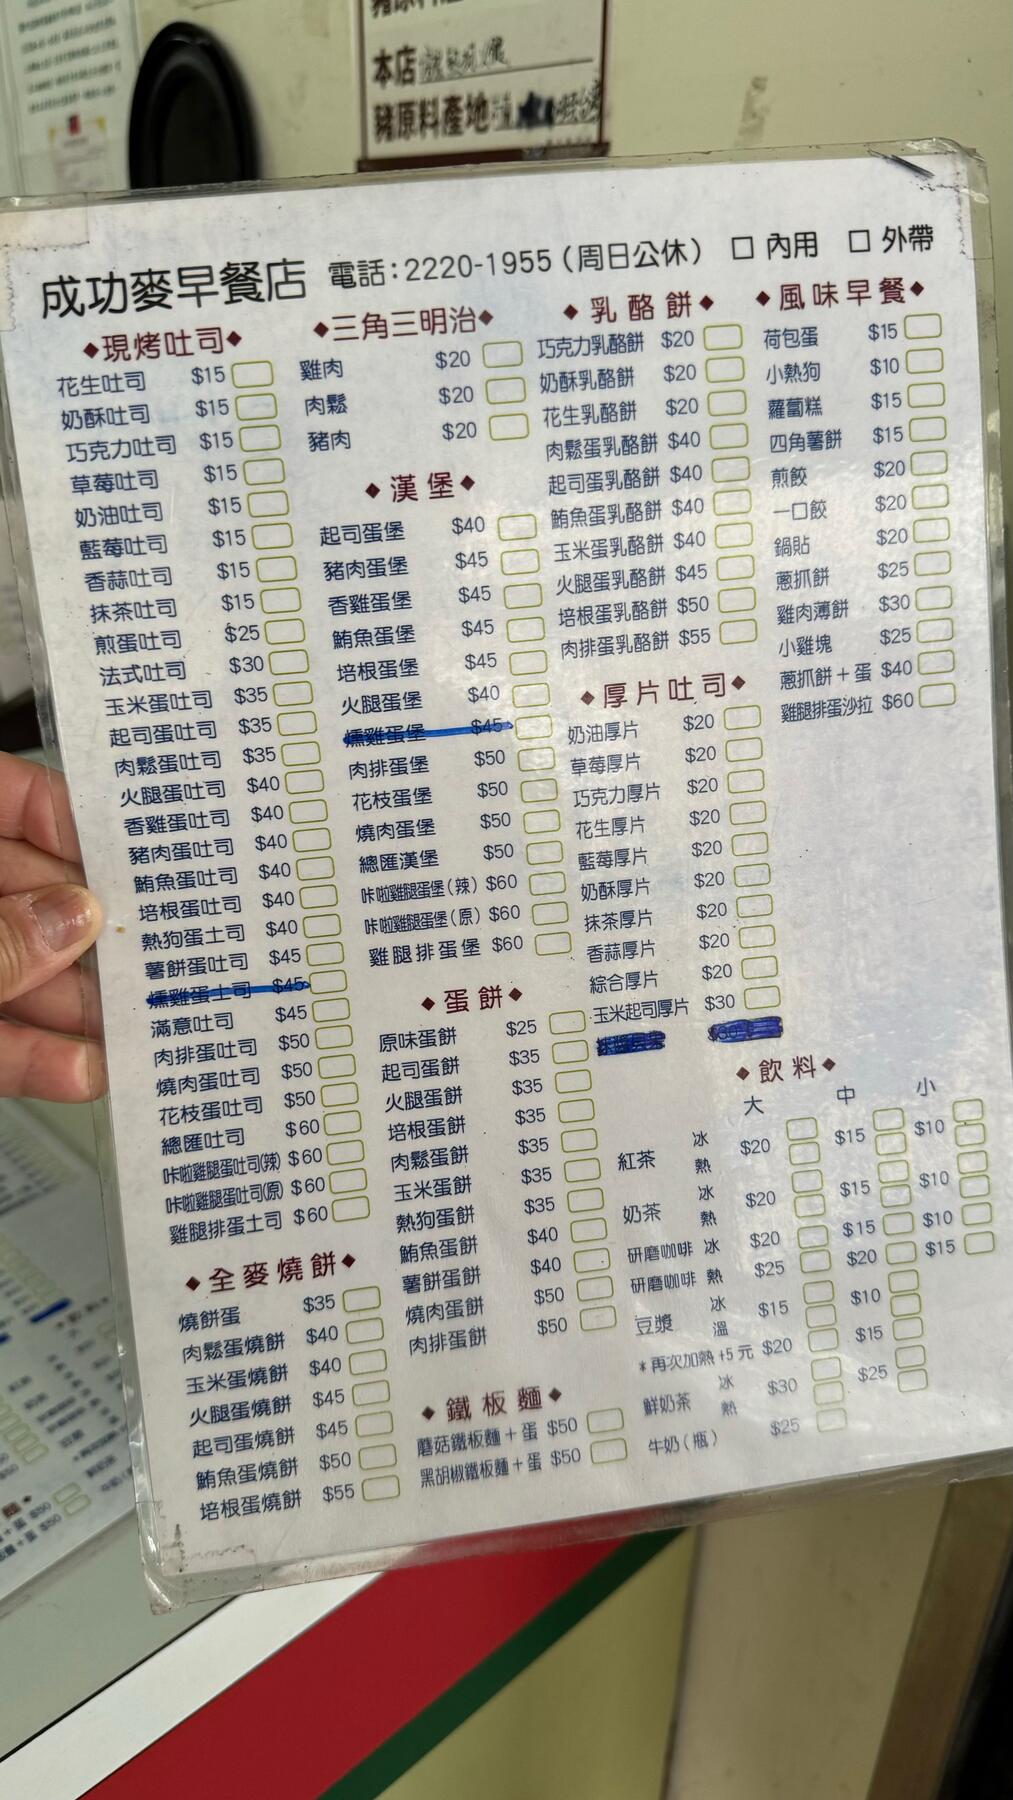 本店
豬原料產地
成功麥早餐店 電話:2220-1955(周日公休) □ 內用 □ 外帶
◆現烤吐司◆
花生吐司 $15
奶酥吐司 $15
巧克力吐司 $15
草莓吐司 $15
奶油吐司 $15
藍莓吐司 $15
香蒜吐司 $15
抹茶吐司 $15
煎蛋吐司 $25
法式吐司 $30
玉米蛋吐司 $35
起司蛋吐司 $35
肉鬆蛋吐司 $35
火腿蛋吐司 $40
香雞蛋吐司 $40
豬肉蛋吐司 $40
鮪魚蛋吐司 $40
培根蛋吐司 $40
熱狗蛋土司 $40
薯餅蛋吐司 $45
燻雞蛋土司 $45
滿意吐司 $45
肉排蛋吐司 $50
燒肉蛋吐司 $50
花枝蛋吐司 $50
總匯吐司 $60
咔啦雞腿蛋吐司(辣) $60
咔啦雞腿蛋吐司(原) $60
雞腿排蛋土司 $60
◆全麥燒餅◆
燒餅蛋 $35
肉鬆蛋燒餅 $40
玉米蛋燒餅 $40
火腿蛋燒餅 $45
起司蛋燒餅 $45
鮪魚蛋燒餅 $50
培根蛋燒餅 $55
◆三角三明治◆
雞肉 $20
肉鬆 $20
豬肉 $20
◆漢堡◆
起司蛋堡 $40
豬肉蛋堡 $45
香雞蛋堡 $45
鮪魚蛋堡 $45
培根蛋堡 $45
火腿蛋堡 $40
燻雞蛋堡 $45
肉排蛋堡 $50
花枝蛋堡 $50
燒肉蛋堡 $50
總匯漢堡 $50
咔啦雞腿蛋堡(辣) $60
咔啦雞腿蛋堡(原) $60
雞腿排蛋堡 $60
◆蛋餅◆
原味蛋餅 $25
起司蛋餅 $35
火腿蛋餅 $35
培根蛋餅 $35
肉鬆蛋餅 $35
玉米蛋餅 $35
熱狗蛋餅 $35
鮪魚蛋餅 $40
薯餅蛋餅 $40
燒肉蛋餅 $50
肉排蛋餅 $50
◆鐵板麵◆
蘑菇鐵板麵+蛋 $50
黑胡椒鐵板麵+蛋 $50
◆乳酪餅◆
巧克力乳酪餅 $20
奶酥乳酪餅 $20
花生乳酪餅 $20
肉鬆蛋乳酪餅 $40
起司蛋乳酪餅 $40
鮪魚蛋乳酪餅 $40
玉米蛋乳酪餅 $40
火腿蛋乳酪餅 $45
培根蛋乳酪餅 $50
肉排蛋乳酪餅 $55
◆厚片吐司◆
奶油厚片 $20
草莓厚片 $20
巧克力厚片 $20
花生厚片 $20
藍莓厚片 $20
奶酥厚片 $20
抹茶厚片 $20
香蒜厚片 $20
綜合厚片 $20
玉米起司厚片 $30
$30
◆風味早餐◆
荷包蛋 $15
小熱狗 $10
蘿蔔糕 $15
四角薯餅 $15
煎餃 $20
一口餃 $20
鍋貼 $20
蔥抓餅 $25
雞肉薄餅 $30
小雞塊 $25
蔥抓餅+蛋 $40
雞腿排蛋沙拉 $60
◆飲料◆
大 中 小
紅茶 冰 熱 $20 $15 $10
奶茶 冰 熱 $20 $15 $10
研磨咖啡 冰 $20 $15 $10
研磨咖啡 熱 $25 $20 $15
豆漿 冰 溫 $15 $10
*再次加熱+5元 $20 $15
鮮奶茶 冰 熱 $30 $25
牛奶(瓶) $25